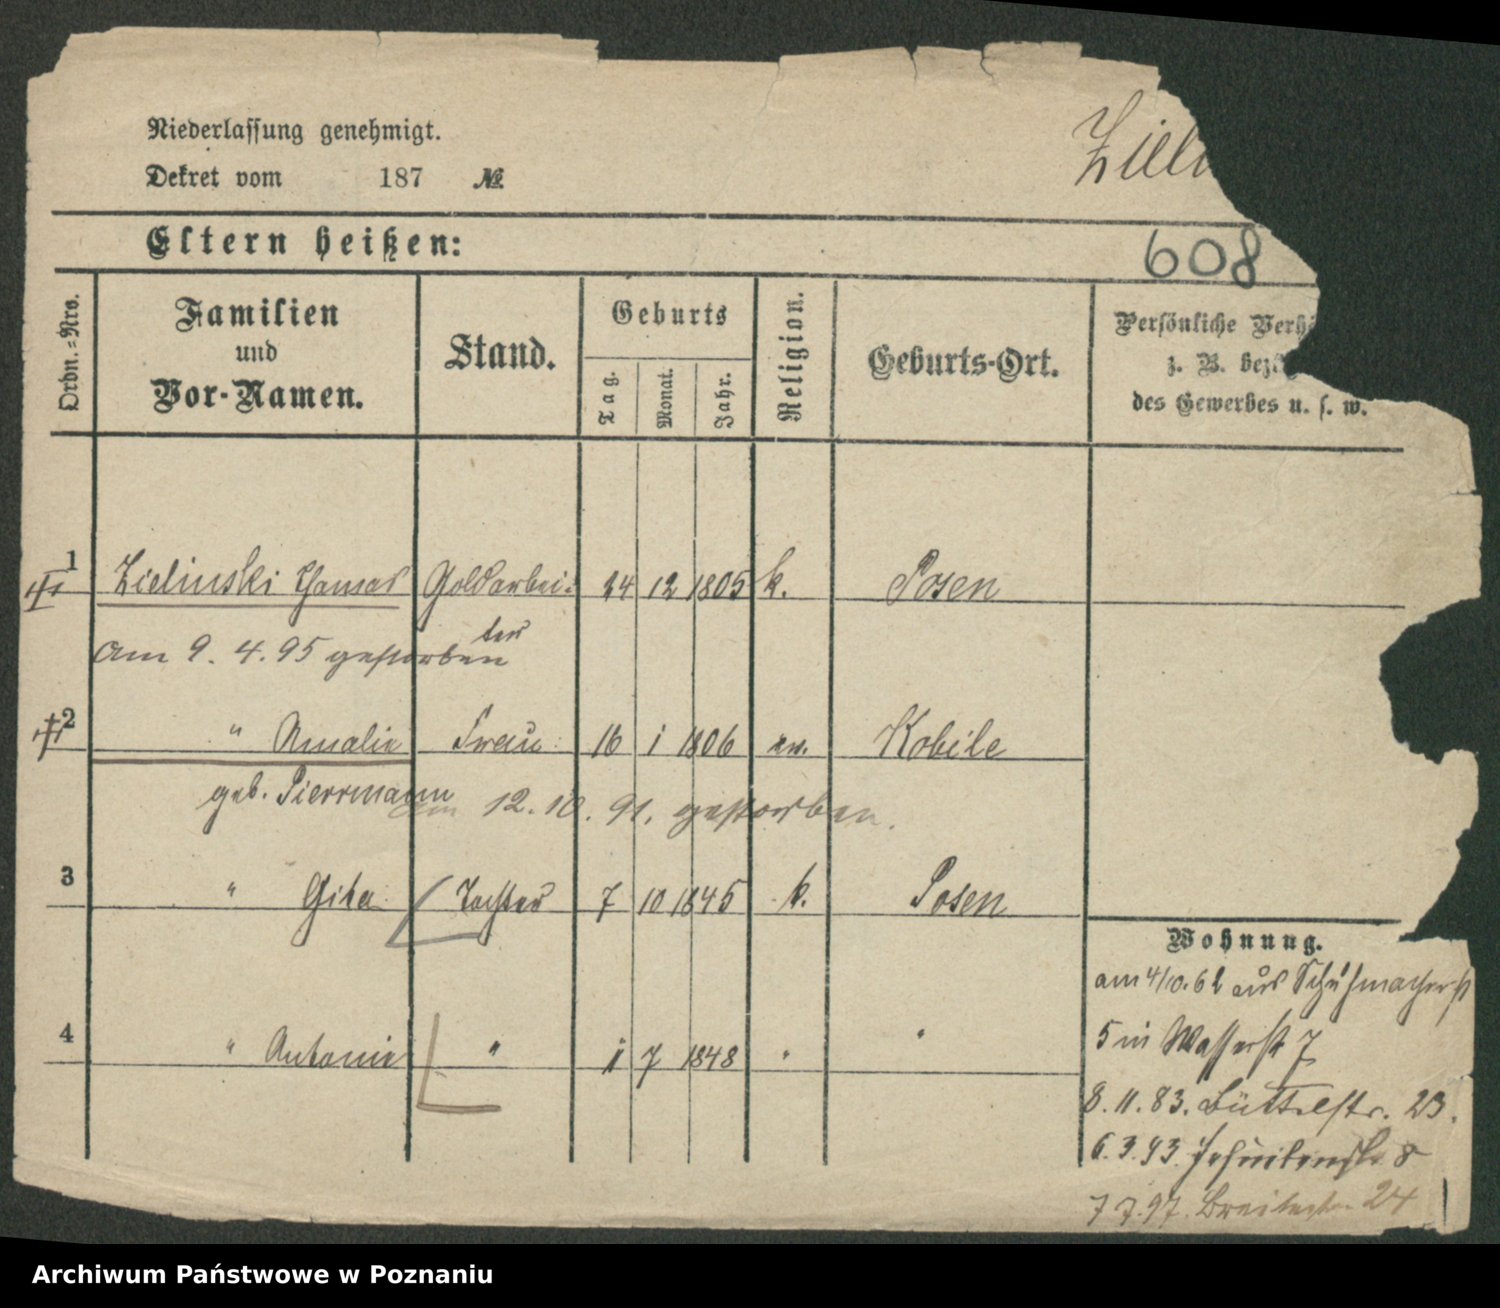 Niederlassung genehmigt.
Dekret vom 187 №
Zieli
Eltern heißen:
608
Ordn.-Nro.
Familien und Vor-Namen.
Stand.
Geburts
Tag. Monat. Jahr.
Religion.
Geburts-Ort.
Persönliche Verhä
z. B. bezü
des Gewerbes u. s. w.
1 Zielinski Thomas Goldarbei- 24 12 1805 k. Posen
ter
am 9. 4. 95 gestorben
2 " Amalie Frau 16 1 1806 ev. Kobile
geb. Pierrmann
am 12. 10. 91. gestorben.
3 " Gita Tochter 7 10 1845 k. Posen
4 " Antonie " 1 7 1848 " "
Wohnung.
am 4/10. 62 aus Schuhmacherst
5 in Wasserst 7
8. 11. 83. Büttelstr. 23.
6. 3. 93. Jesuitenstr 8
7 7. 97. Breitestr. 24
Archiwum Państwowe w Poznaniu